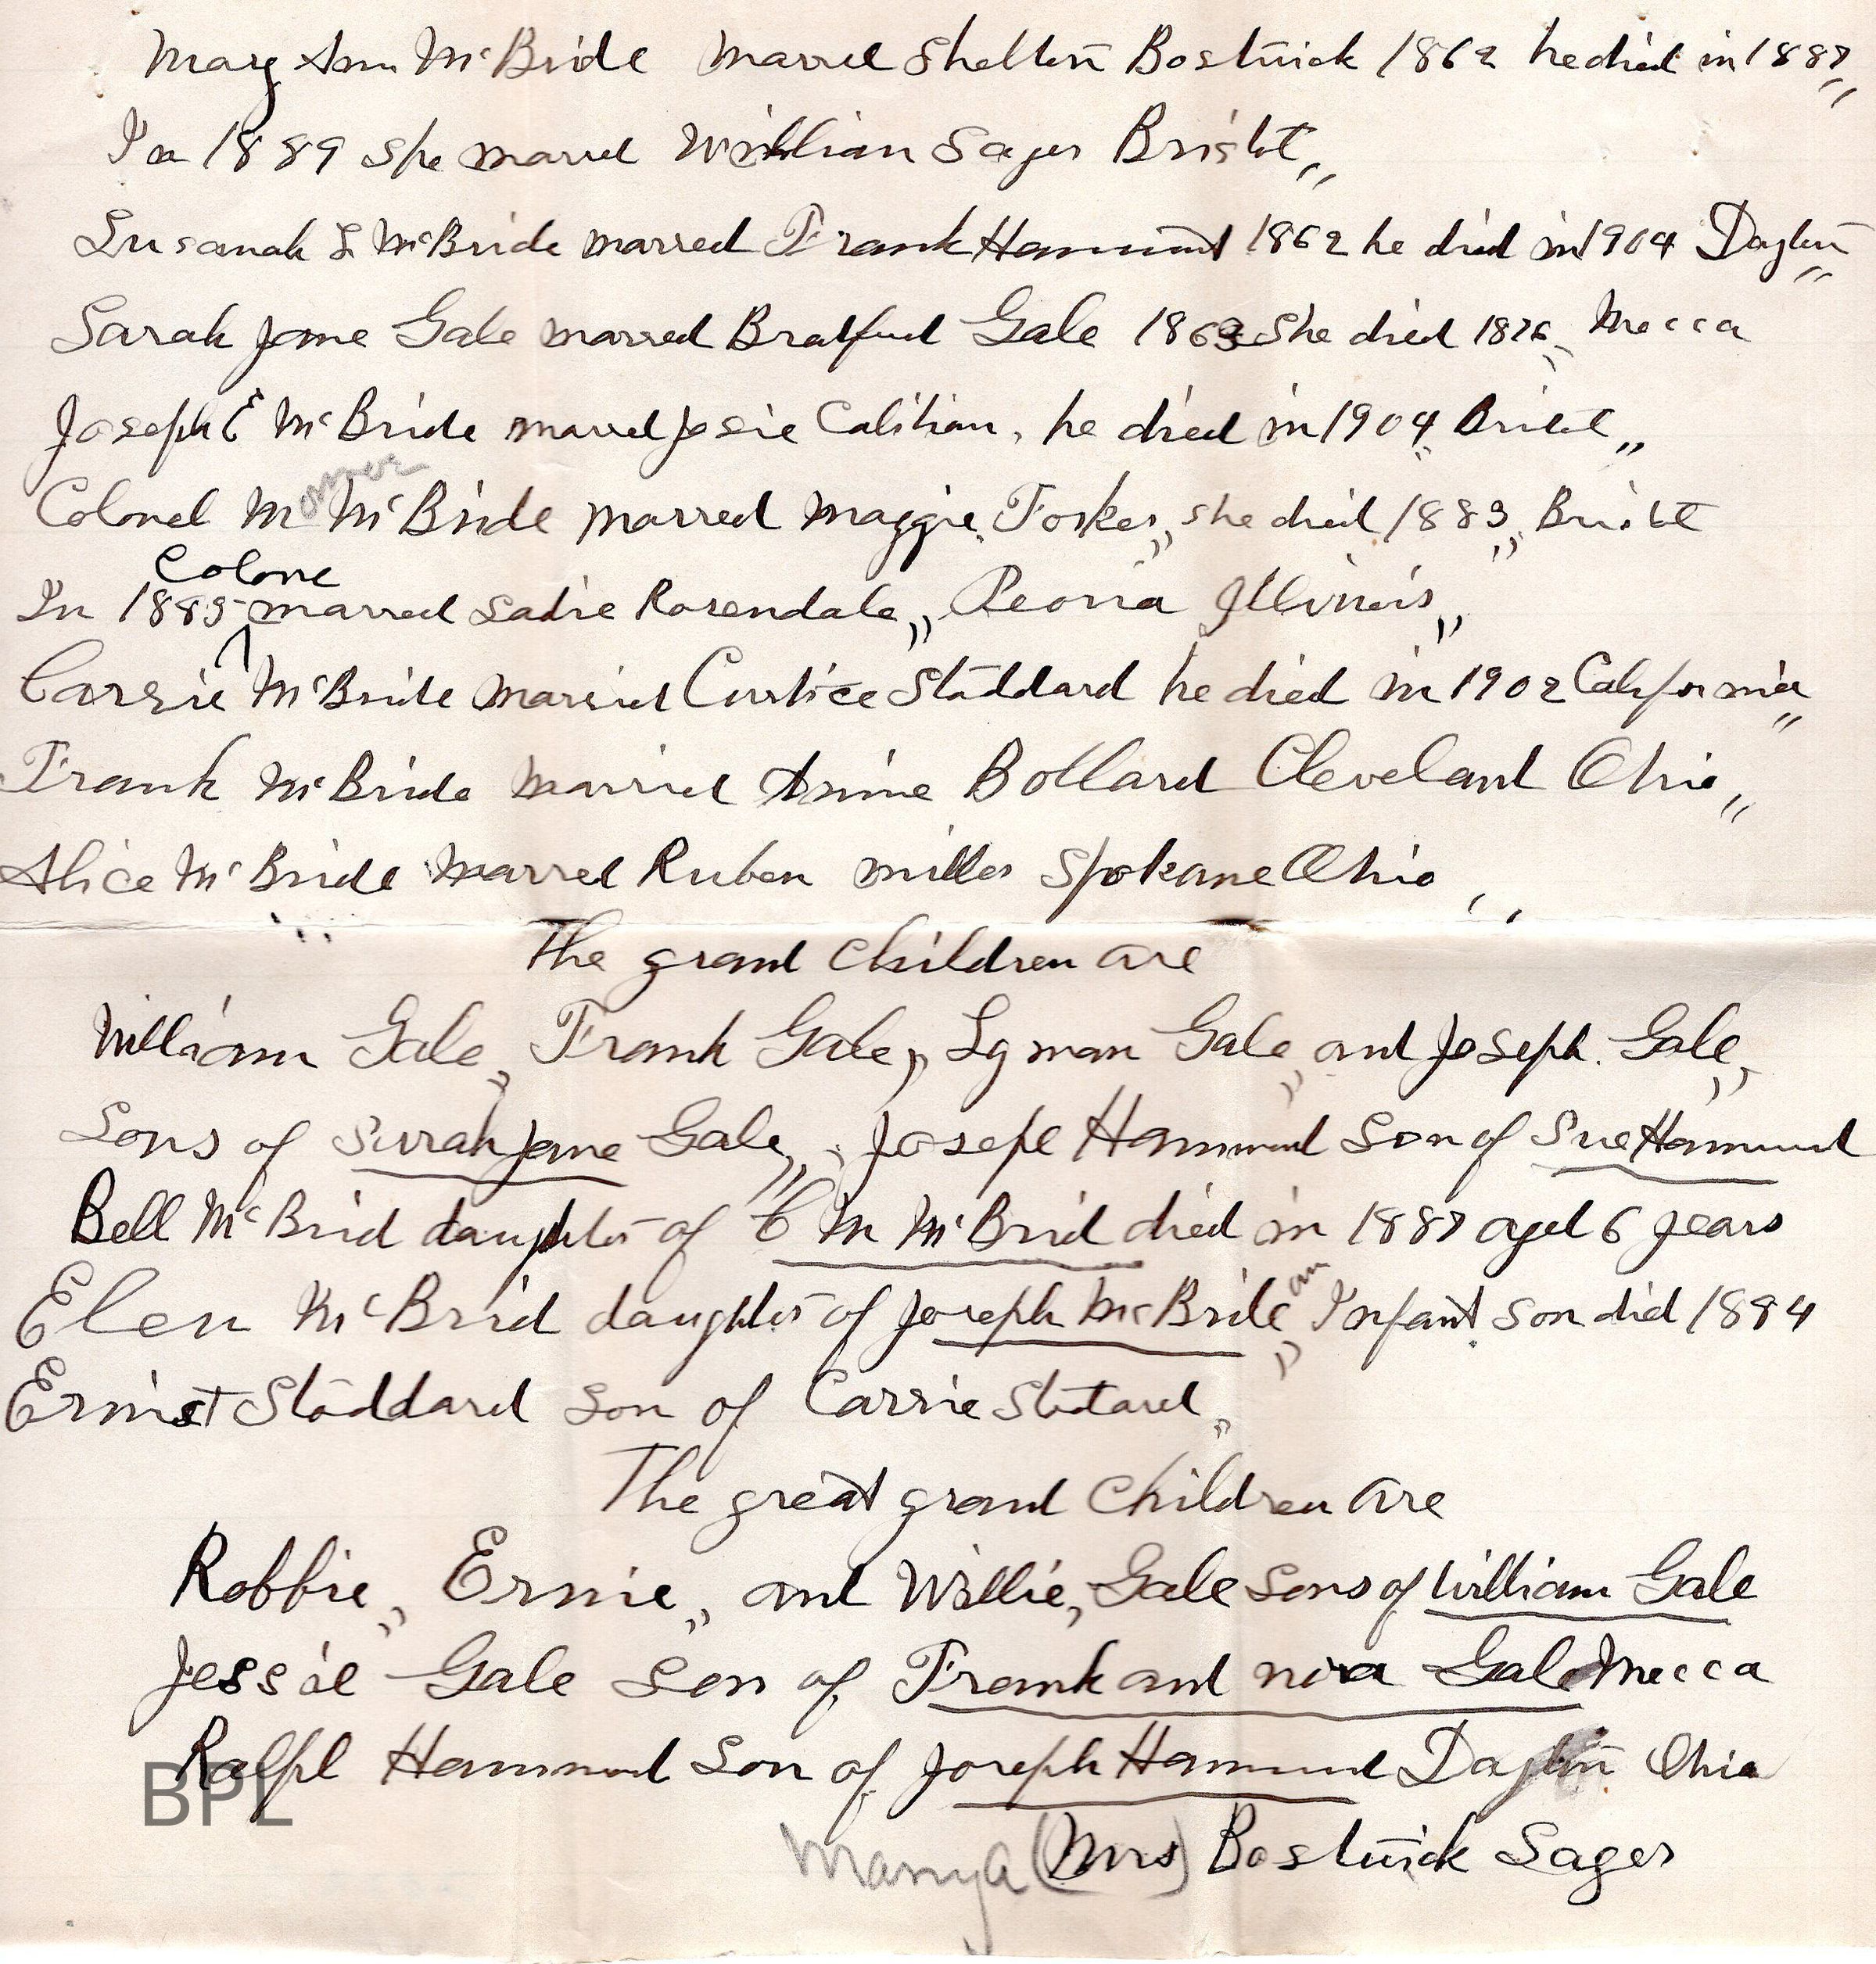 Mary Ann McBride marred Shelten Bostwick 1862 he died in 1887,,
In 1889 She marred William Sager Bristol,,
Susanah L McBride marred Frank Hammond 1862 he died in 1904 Dayton,,
Sarah Jane Gale marred Bradford Gale 1863 She died 1876,, Mecca
Joseph E McBride marred Josie Calihan, he died in 1904,, Bristol,,
Colonel M McBride marred Maggie Forker,, she died 1883,, Bristol
Colone
In 1885 marred Sadie Rosendale,, Peoria Illinois,,
Carrie McBride married Curtice Stoddard he died in 1902 California,,
Frank McBride married Annie Bollard Cleveland Ohio,,
Alice McBride marred Ruben miller Spokane Ohio,,
The grand Children are
William Gale,, Frank Gale,, Lyman Gale,, and Joseph. Gale,,
Sons of Surrah Jane Gale,, Joseph Hammond Son of Sue Hammond
Bell McBrid daughter of C M McBrid died in 1887 aged 6 years
an
Elen McBrid daughter of Joseph McBride,, Infant Son did 1884
Ernist Stoddard Son of Carrie Stotard,,
The great grand Children are
Robbie,, Ernie,, and Willie, Gale Sons of William Gale
Jessie Gale Son of Frank and nora Gale Mecca
Ralph Hammond Son of Joseph Hammond Dayton Ohio
Mary A (Mrs) Bostwick Sager
BPL